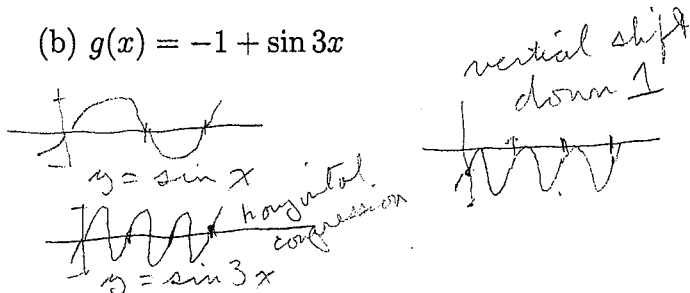 (b) g(x) = −1 + sin 3x
vertical shift
down 1
y = sin x
horizontal
compression
y = sin 3x